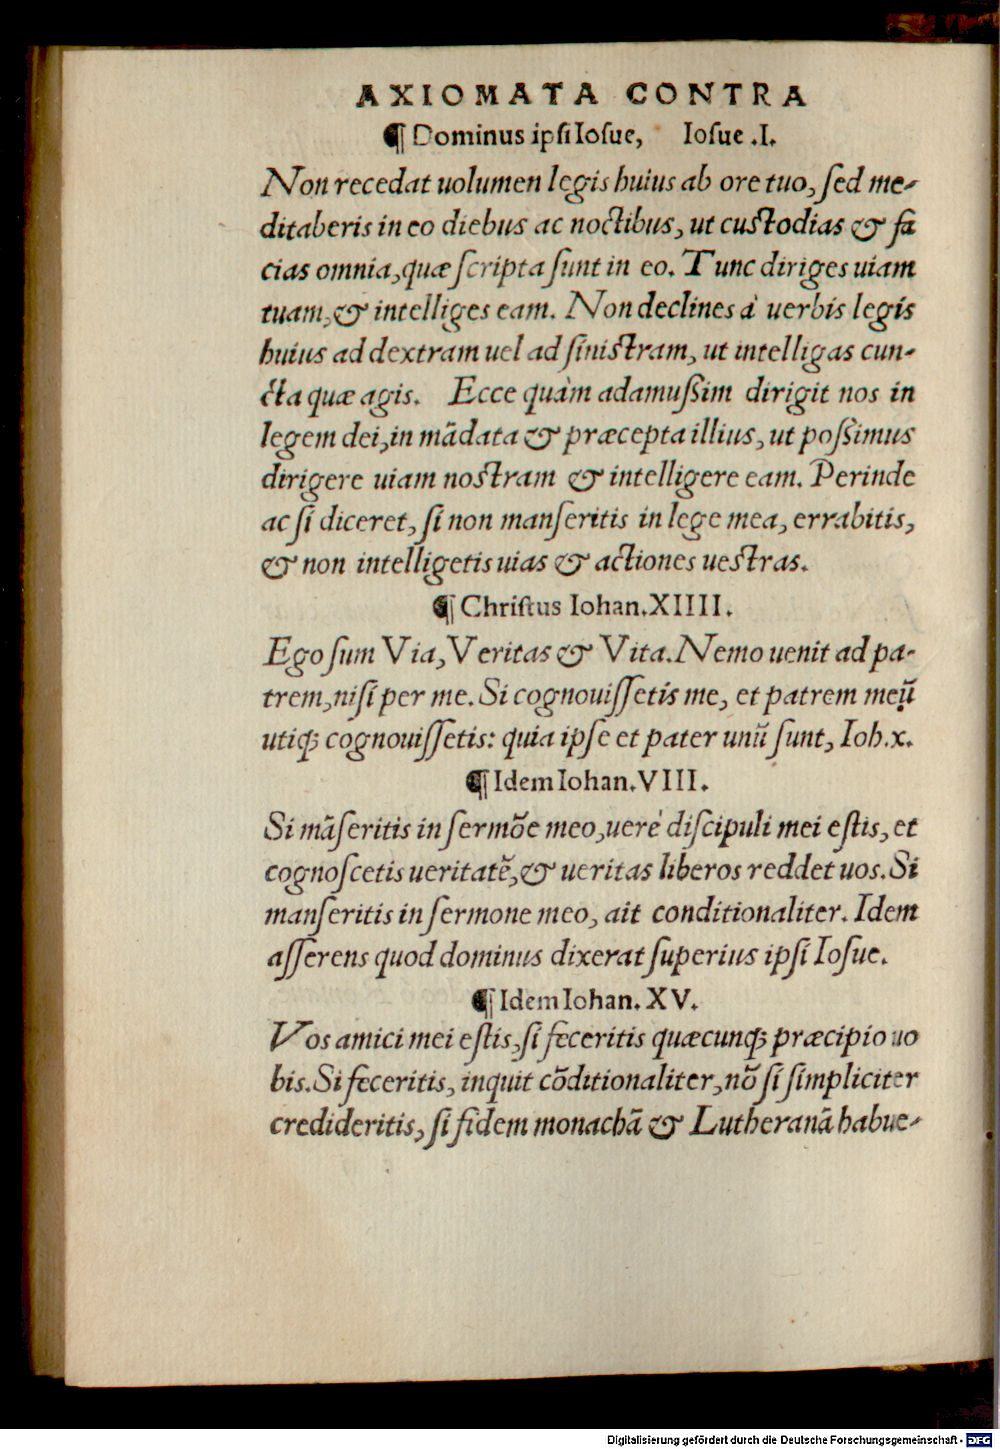 AXIOMATA CONTRA
¶ Dominus ipsi Iosue, Iosue .I.
Non recedat uolumen legis huius ab ore tuo, sed me-
ditaberis in eo diebus ac noctibus, ut custodias & fa
cias omnia, quæ scripta sunt in eo. Tunc diriges uiam
tuam, & intelliges eam. Non declines à uerbis legis
huius ad dextram uel ad sinistram, ut intelligas cun-
cta quæ agis. Ecce quàm adamussim dirigit nos in
legem dei, in mādata & præcepta illius, ut possimus
dirigere uiam nostram & intelligere eam. Perinde
ac si diceret, si non manseritis in lege mea, errabitis,
& non intelligetis uias & actiones uestras.
¶ Christus Iohan. XIIII.
Ego sum Via, Veritas & Vita. Nemo uenit ad pa-
trem, nisi per me. Si cognouissetis me, et patrem meū
utiq; cognouissetis: quia ipse et pater unū sunt, Ioh. x.
¶ Idem Iohan. VIII.
Si māseritis in sermōe meo, uerè discipuli mei estis, et
cognoscetis ueritatē, & ueritas liberos reddet uos. Si
manseritis in sermone meo, ait conditionaliter. Idem
asserens quod dominus dixerat superius ipsi Iosue.
¶ Idem Iohan. XV.
Vos amici mei estis, si feceritis quæcunq; præcipio uo
bis. Si feceritis, inquit cōditionaliter, nō si simpliciter
credideritis, si fidem monachā & Lutheranā habue-
Digitalisierung gefördert durch die Deutsche Forschungsgemeinschaft - DFG